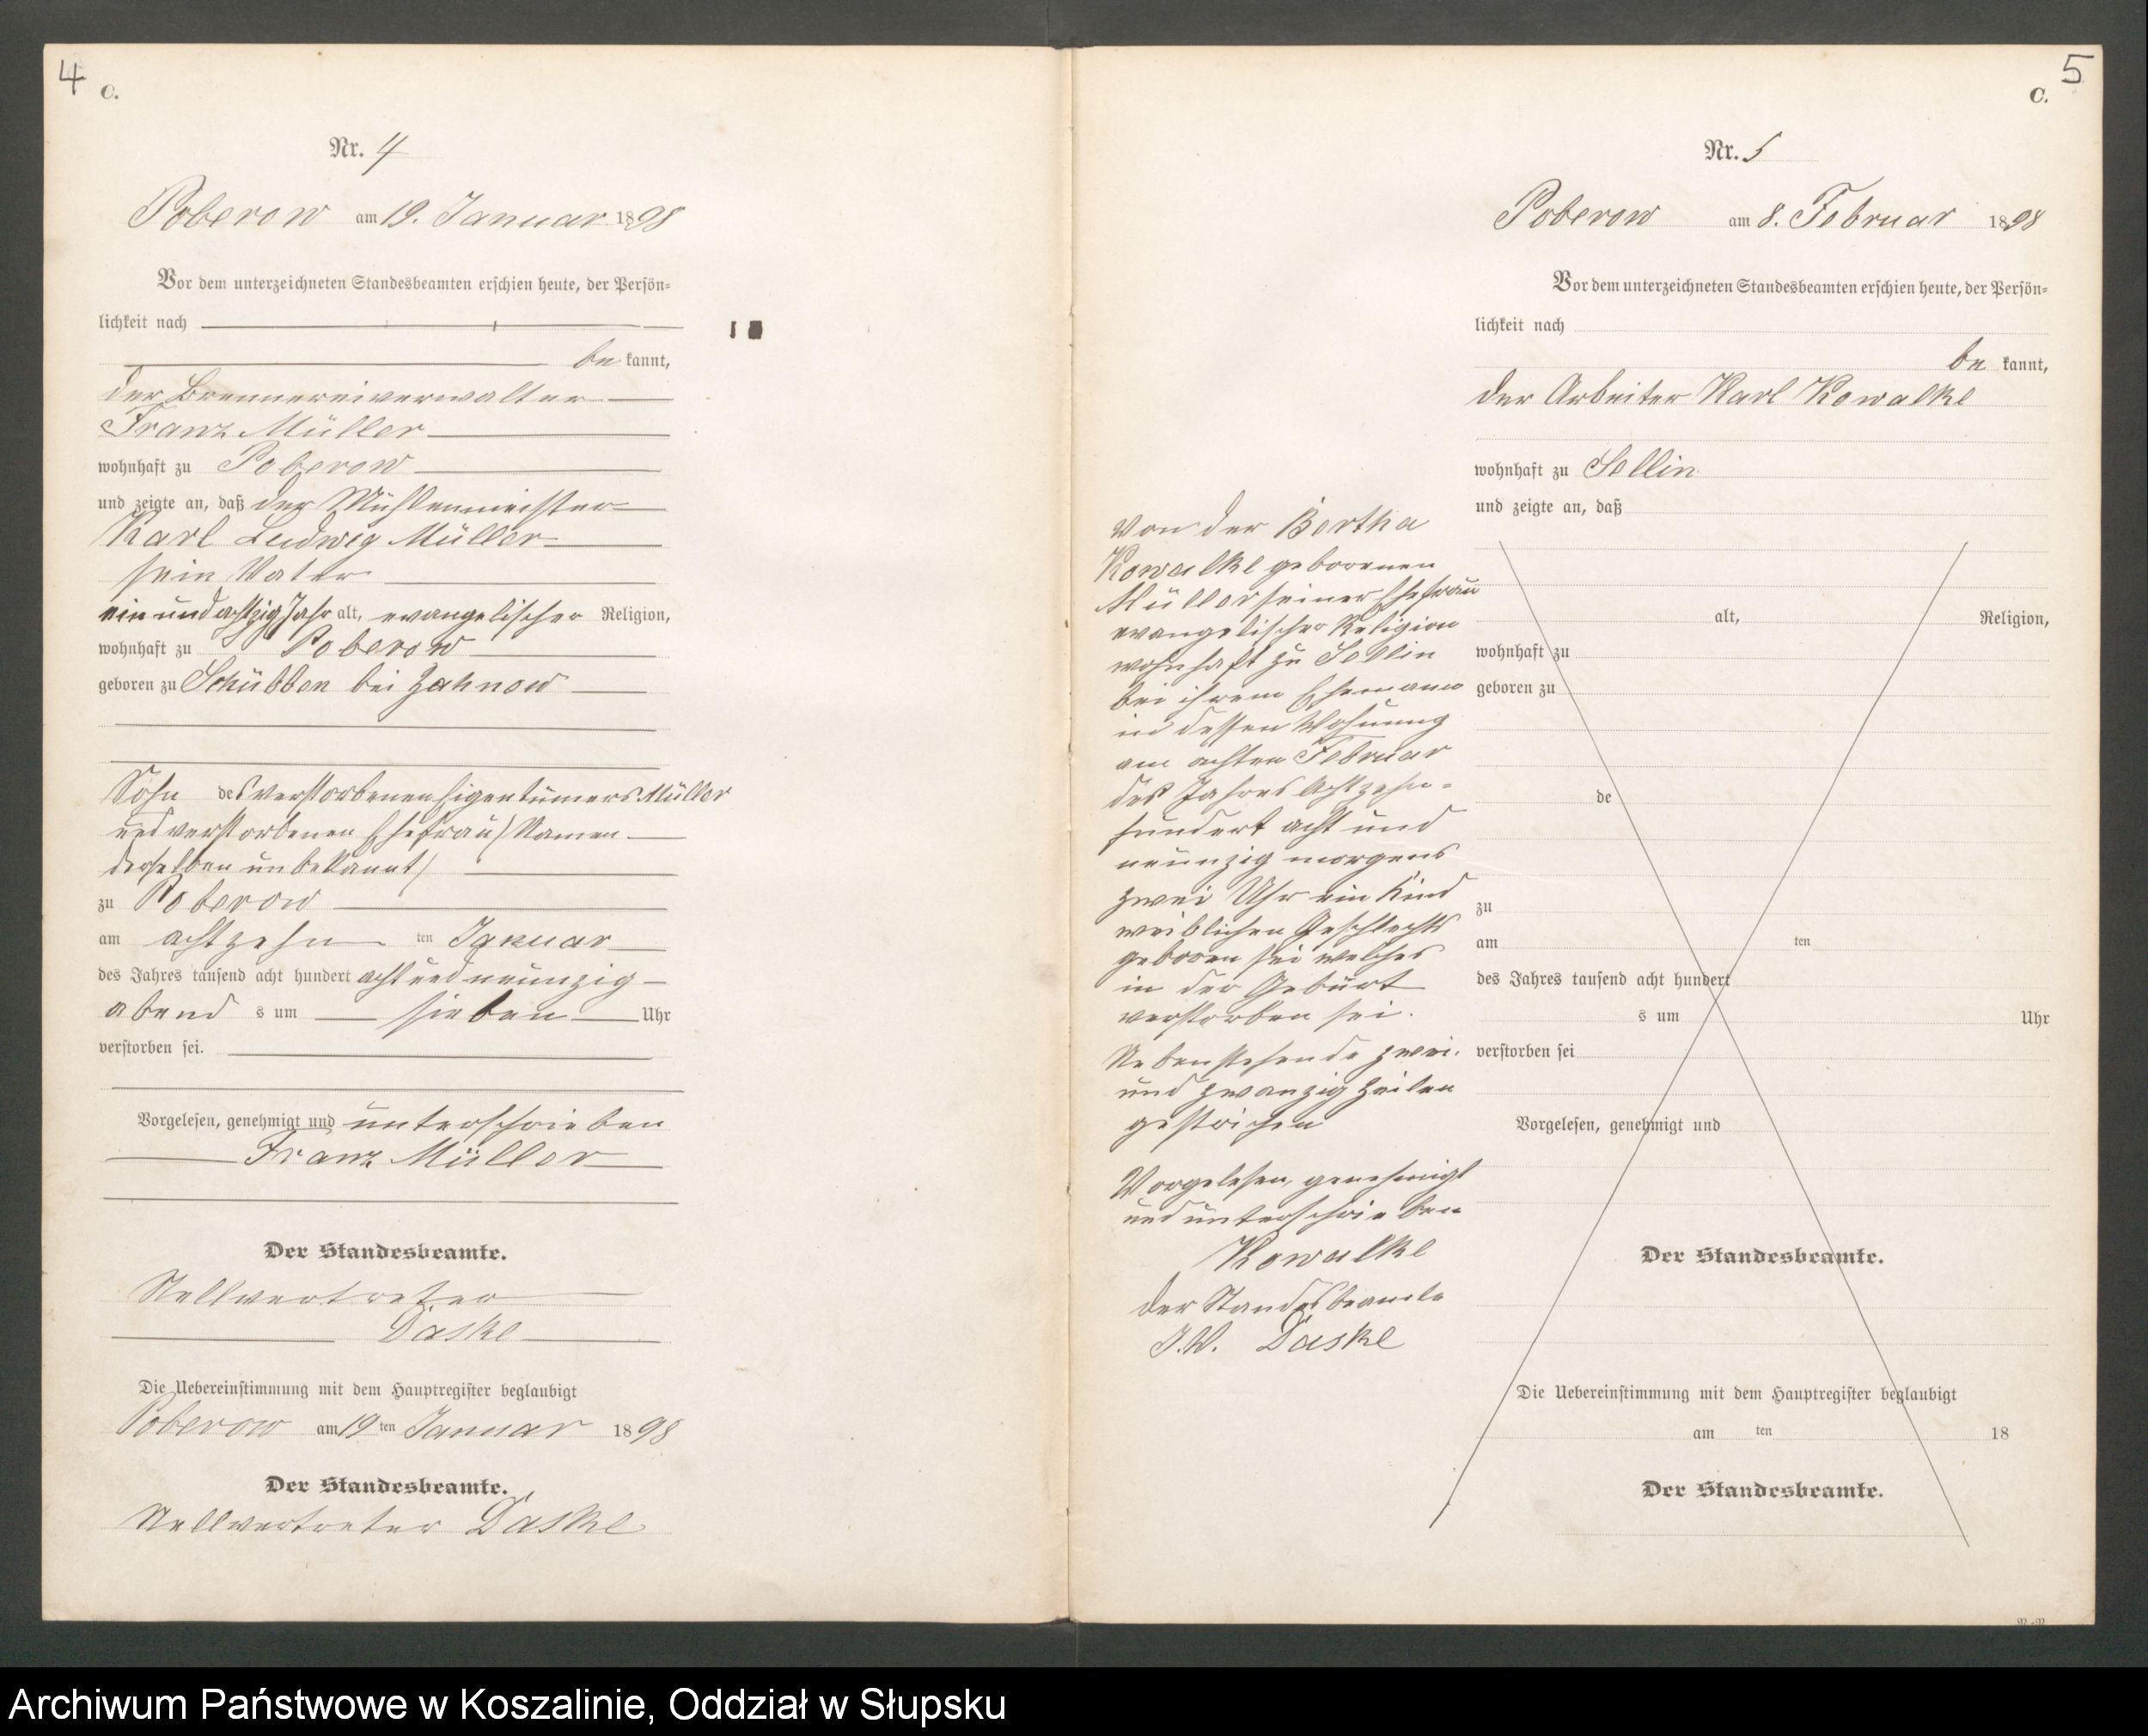 4
C.
Nr. 4
Poberow am 19. Januar 1898
Vor dem unterzeichneten Standesbeamten erschien heute, der Persön-
lichkeit nach
be kannt,
der Brennereiverwalter
Franz Müller
wohnhaft zu Poberow
und zeigte an, daß der Mühlenmeister
Karl Ludwig Müller
sein Vater
ein und achtzig Jahr alt, evangelischer Religion,
wohnhaft zu Poberow
geboren zu Schübben bei Zahnow
Sohn des verstorbenen Eigentümers Müller
und verstorbenen Ehefrau (Namen
derselben unbekannt)
zu Poberow
am achtzehn ten Januar
des Jahres tausend acht hundert acht und neunzig
abend s um sieben Uhr
verstorben sei.
Vorgelesen, genehmigt und unterschrieben
Franz Müller
Der Standesbeamte.
Stellvertreter
Daske
Die Uebereinstimmung mit dem Hauptregister beglaubigt
Poberow am 19 ten Januar 1898
Der Standesbeamte.
Stellvertreter Daske
5
C.
Nr. 5
Poberow am 8. Februar 1898
Vor dem unterzeichneten Standesbeamten erschien heute, der Persön-
lichkeit nach
be kannt,
der Arbeiter Karl Kowalke
wohnhaft zu Sellin
und zeigte an, daß
alt, Religion,
wohnhaft zu
geboren zu
de
zu
am ten
des Jahres tausend acht hundert
s um Uhr
verstorben sei
Vorgelesen, genehmigt und
Der Standesbeamte.
Die Uebereinstimmung mit dem Hauptregister beglaubigt
am ten 18
Der Standesbeamte.
von der Bertha
Kowalke geborenen
Müller seiner Ehefrau
evangelischer Religion
wohnhaft zu Sellin
bei ihrem Ehemann
in dessen Wohnung
am achten Februar
des Jahres Achtzehn-
hundert acht und
neunzig morgens
zwei Uhr ein Kind
weiblichen Geschlechts
geboren sei welches
in der Geburt
verstorben sei.
Nebenstehende zwei
und zwanzig Zeilen
gestrichen
Vorgelesen, genehmigt
und unterschrieben
Kowalke
Der Standesbeamte
J.V. Daske
Archiwum Państwowe w Koszalinie, Oddział w Słupsku